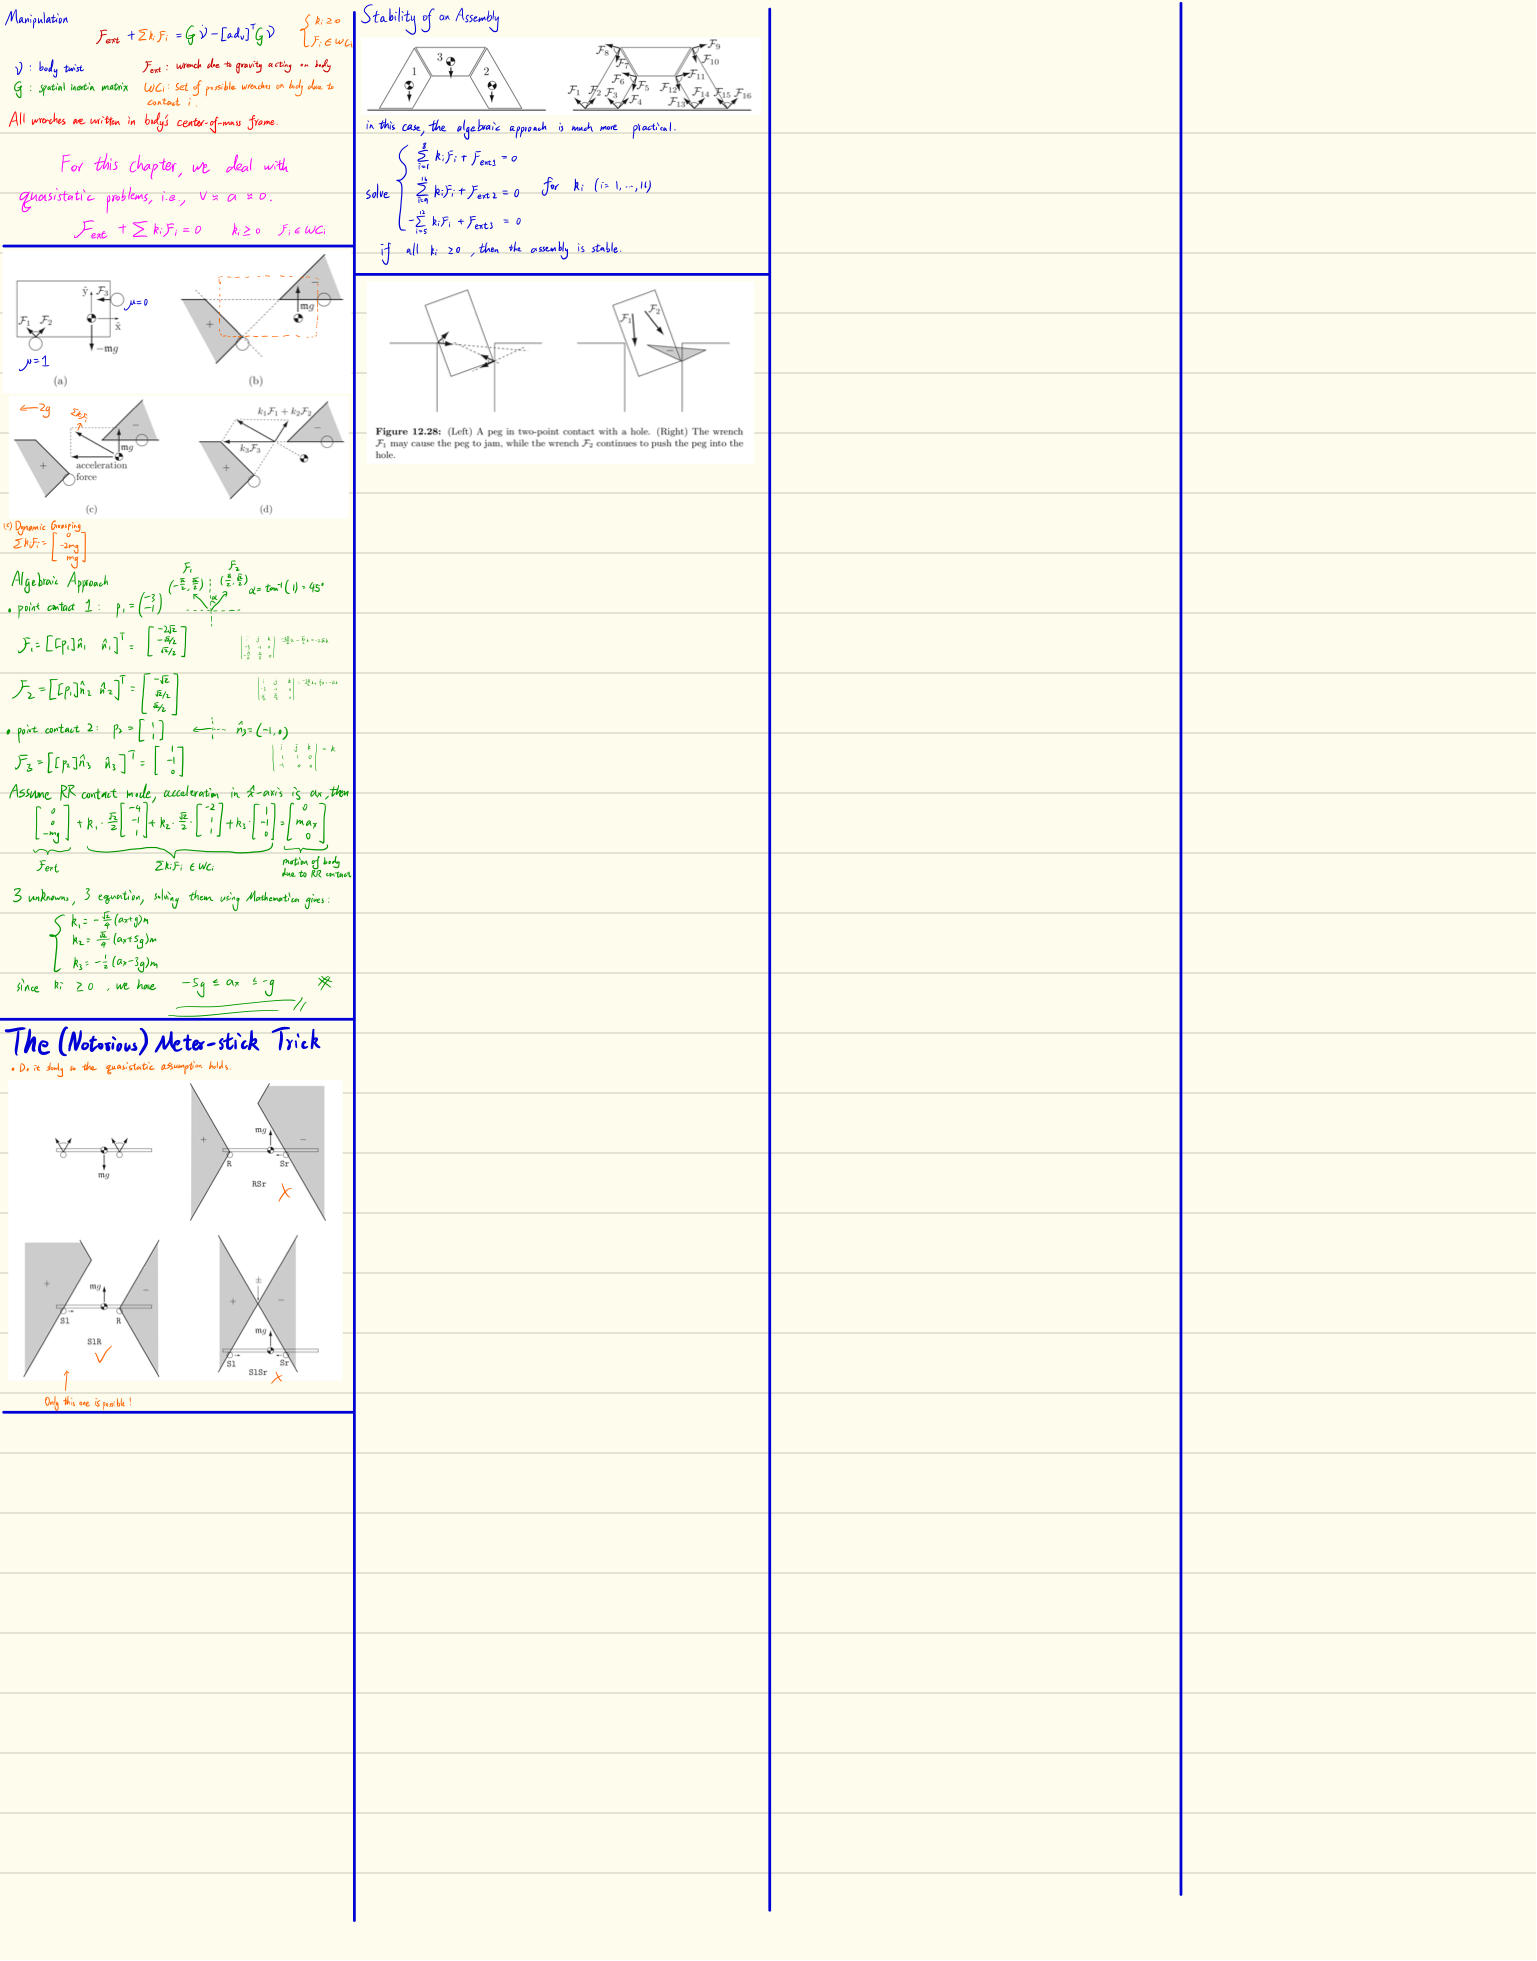 Manipulation
F_ext + Σ k_i F_i = G ν̇ − [ad_ν]ᵀ G ν { k_i ≥ 0
F_i ∈ WC_i
ν : body twist F_ext : wrench due to gravity acting on body
G : spatial inertia matrix WC_i : set of possible wrenches on body due to
contact i.
All wrenches are written in body's center-of-mass frame.
For this chapter, we deal with
quasistatic problems, i.e., V ≈ a ≈ 0.
F_ext + Σ k_i F_i = 0 k_i ≥ 0 F_i ∈ WC_i
ŷ F₃ μ=0
F₁ F₂ x̂
−mg
μ=1
(a)
+ − mg
(b)
← 2g Σk_iF_i
+ − mg
acceleration
force
(c)
k₁F₁ + k₂F₂
k₃F₃
+ −
(d)
(c) Dynamic Grasping
Σ k_i F_i = [ 0 −2mg mg ]
Algebraic Approach F₁ (−√2/2, √2/2) F₂ (√2/2, √2/2) α α = tan⁻¹(1) = 45°
• point contact 1 : p₁ = (−3 −1)
F₁ = [[p₁]n̂₁ n̂₁]ᵀ = [ −2√2 −√2/2 √2/2 ]
F₂ = [[p₁]n̂₂ n̂₂]ᵀ = [ −√2 √2/2 √2/2 ]
• point contact 2 : p₂ = [ 1 1 ] n̂₃ = (−1, 0)
F₃ = [[p₂]n̂₃ n̂₃]ᵀ = [ 1 −1 0 ] | i j k 1 1 0 −1 0 0 | = k
Assume RR contact mode, acceleration in x̂-axis is ax, then
[ 0 0 −mg ] + k₁ · √2/2 [ −4 −1 1 ] + k₂ · √2/2 · [ −2 1 1 ] + k₃ · [ 1 −1 0 ] = [ 0 m ax 0 ]
F_ext Σ k_i F_i ∈ WC_i motion of body
due to RR contact
3 unknowns, 3 equation, solving them using Mathematica gives :
{ k₁ = −√2/4 (ax+g)m
k₂ = √2/4 (ax+5g)m
k₃ = −1/2 (ax−3g)m
since k_i ≥ 0 , we have −5g ≤ ax ≤ −g
The (Notorious) Meter-stick Trick
• Do it slowly so the quasistatic assumption holds.
mg
+ mg −
R Sr
RSr ✗
+ mg −
Sl R
SlR ✓
±
+ −
mg
Sl Sr
SlSr ✗
Only this one is possible !
Stability of an Assembly
1 3 2
F₁ F₂ F₃ F₄ F₅ F₆ F₇ F₈ F₉ F₁₀ F₁₁ F₁₂ F₁₃ F₁₄ F₁₅ F₁₆
in this case, the algebraic approach is much more practical.
solve { Σ_{i=1}^{8} k_i F_i + F_ext1 = 0
Σ_{i=9}^{16} k_i F_i + F_ext2 = 0 for k_i (i = 1, ..., 16)
−Σ_{i=5}^{12} k_i F_i + F_ext3 = 0
if all k_i ≥ 0 , then the assembly is stable.
F₁ F₂
−
Figure 12.28: (Left) A peg in two-point contact with a hole. (Right) The wrench
F₁ may cause the peg to jam, while the wrench F₂ continues to push the peg into the
hole.